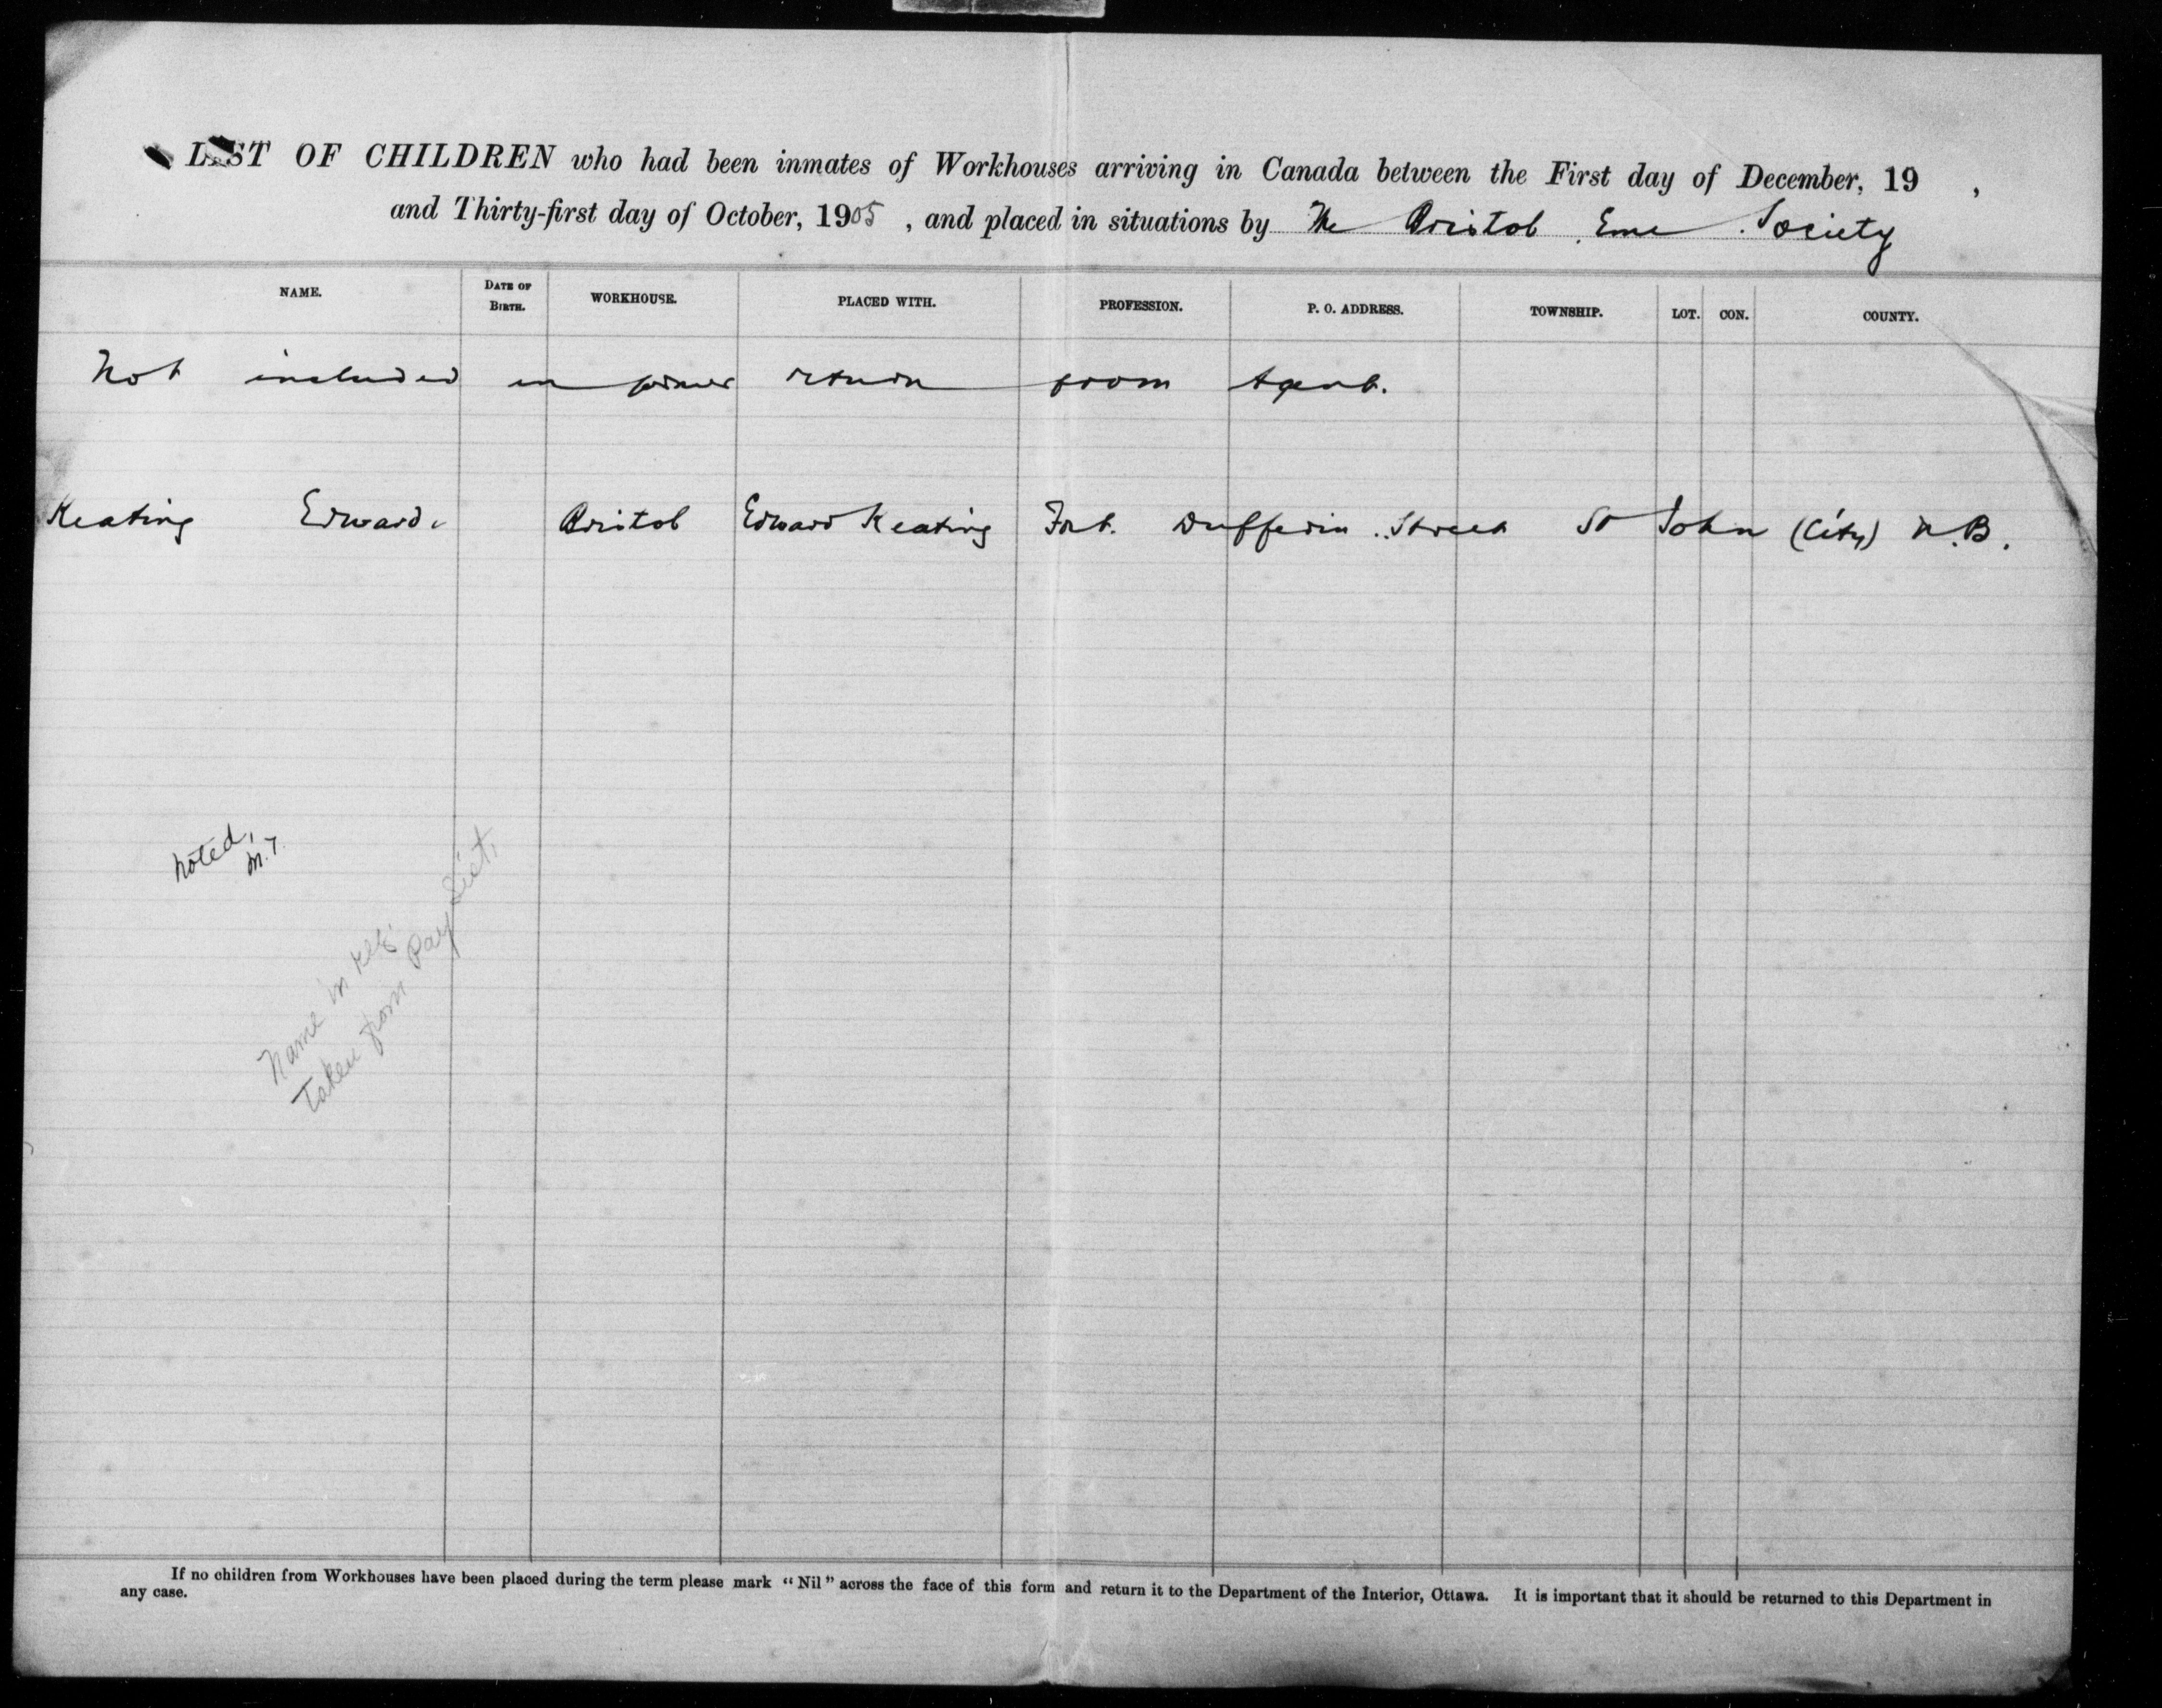 LIST OF CHILDREN who had been inmates of Workhouses arriving in Canada between the First day of December, 19 ,
and Thirty-first day of October, 1905 , and placed in situations by The Bristol Eme Society
NAME. DATE OF BIRTH. WORKHOUSE. PLACED WITH. PROFESSION. P. O. ADDRESS. TOWNSHIP. LOT. CON. COUNTY.
Not included in former return from Agent.
Keating Edward. Bristol Edward Keating Fort. Dufferin Street St John (City) N.B.
Noted,
M.T.
Name in
Taken from Pay List.
If no children from Workhouses have been placed during the term please mark "Nil" across the face of this form and return it to the Department of the Interior, Ottawa. It is important that it should be returned to this Department in
any case.